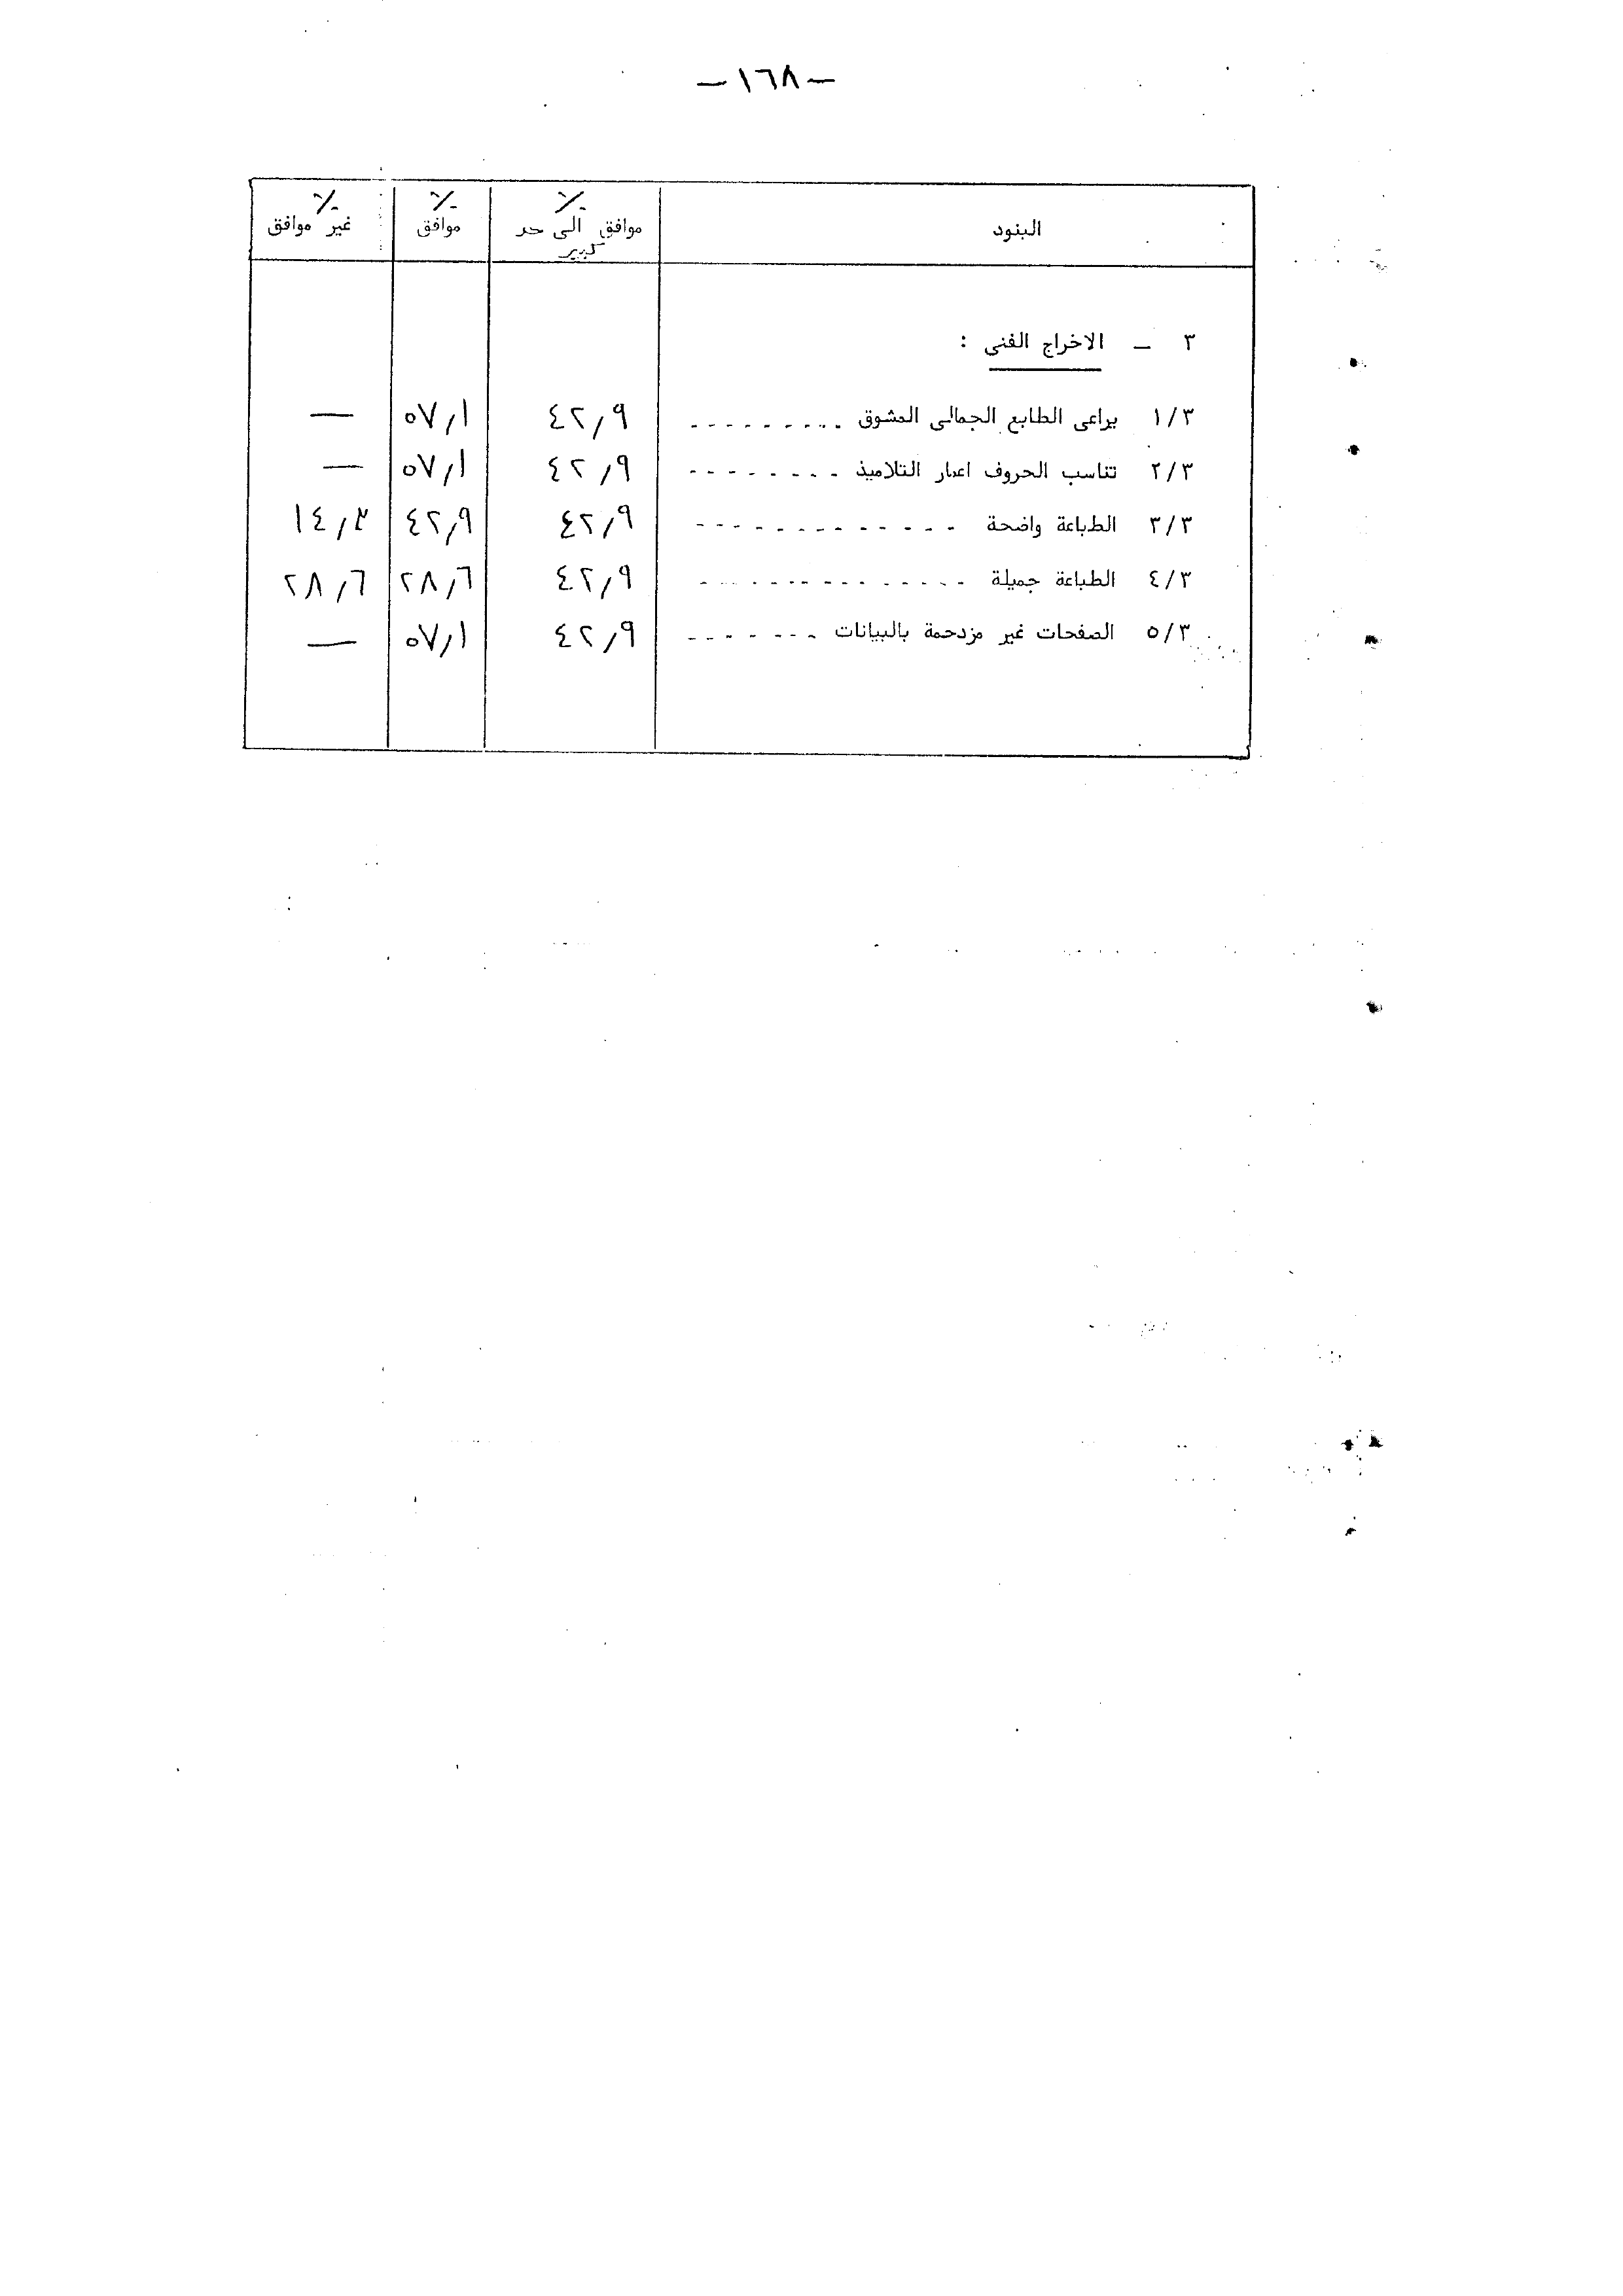 — ١٦٨ —
البنود ٪ موافق الى حد كبير ٪ موافق ٪ غير موافق
٣ — الاخراج الفنى :
١/٣ يراعى الطابع الجمالى المشوق ٤٢٫٩ ٥٧٫١ —
٢/٣ تناسب الحروف اعمار التلاميذ ٤٢٫٩ ٥٧٫١ —
٣/٣ الطباعة واضحة ٤٢٫٩ ٤٢٫٩ ١٤٫٢
٤/٣ الطباعة جميلة ٤٢٫٩ ٢٨٫٦ ٢٨٫٦
٥/٣ الصفحات غير مزدحمة بالبيانات ٤٢٫٩ ٥٧٫١ —